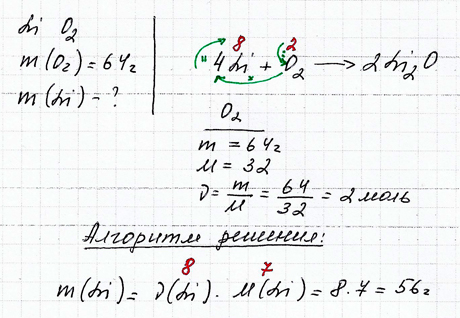 Li O₂
m(O₂) = 64г
m(Li) - ?
8 2
"4Li + O₂ → 2Li₂O
x
O₂
m = 64г
M = 32
ν = m/M = 64/32 = 2 моль
Алгоритм решения:
8 7
m(Li) = ν(Li) · M(Li) = 8 · 7 = 56г